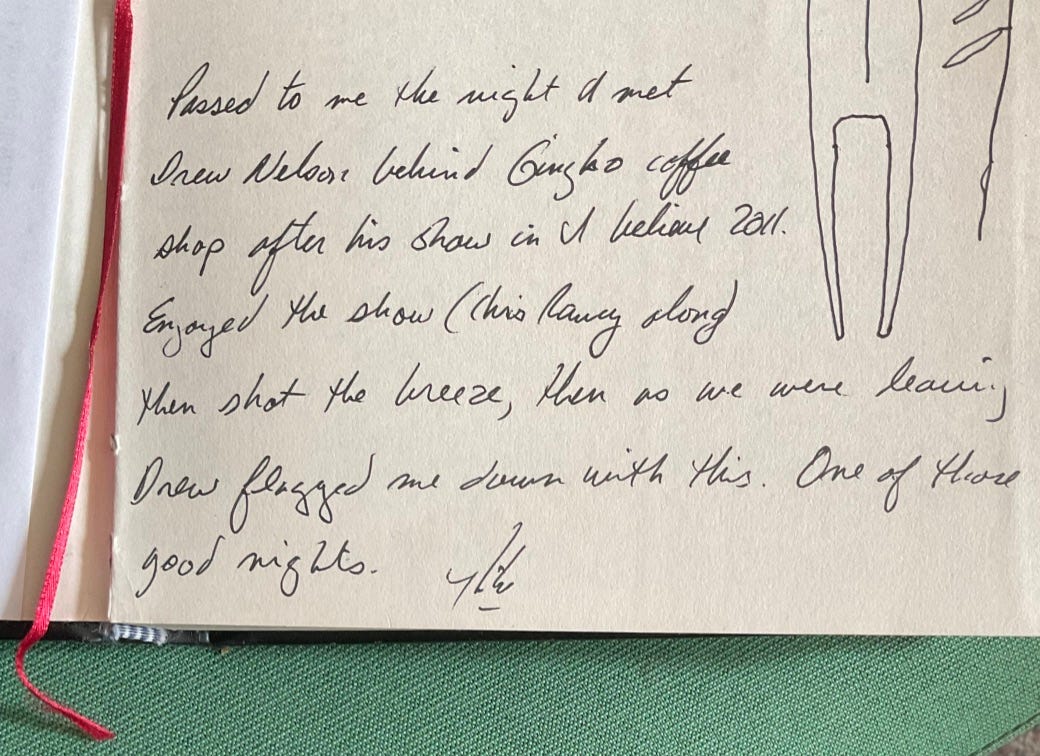 Passed to me the night I met
Drew Nelson behind Gingko coffee
shop after his show in I believe 2011.
Enjoyed the show (Chris along)
then shot the breeze, then as we were leaving
Drew flagged me down with this. One of those
good nights.